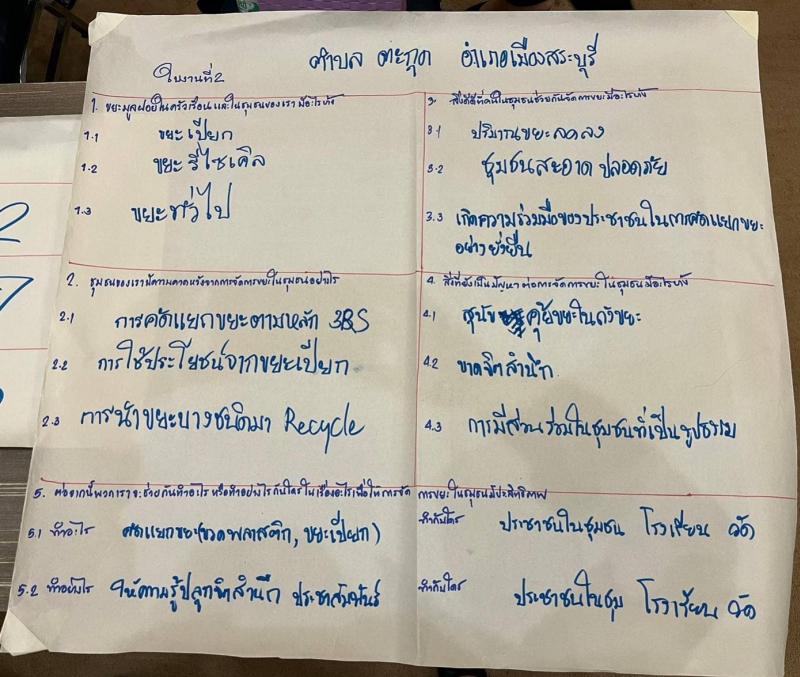 ใบงานที่2
ตำบล ตะกุด อำเภอเมืองสระบุรี
1. ขยะมูลฝอยในครัวเรือนและในชุมชนของเรา มีอะไรบ้าง
1.1 ขยะเปียก
1.2 ขยะรีไซเคิล
1.3 ขยะทั่วไป
2. ชุมชนของเรามีความคาดหวังจากการจัดการขยะในชุมชนอย่างไร
2.1 การคัดแยกขยะตามหลัก 3RS
2.2 การใช้ประโยชน์จากขยะเปียก
2.3 การนำขยะบางชนิดมา Recycle
3. สิ่งที่ดีที่คนในชุมชนช่วยกันจัดการขยะมีอะไรบ้าง
3.1 ปริมาณขยะลดลง
3.2 ชุมชนสะอาด ปลอดภัย
3.3 เกิดความร่วมมือของประชาชนในการคัดแยกขยะ
อย่างยั่งยืน
4. สิ่งที่ยังเป็นปัญหาต่อการจัดการขยะในชุมชนมีอะไรบ้าง
4.1 สุนัข คุ้ยขยะในถังขยะ
4.2 ขาดจิตสำนึก
4.3 การมีส่วนร่วมในชุมชนที่เป็นรูปธรรม
5. ต่อจากนี้พวกเราจะช่วยกันทำอะไร หรือทำอย่างไรกับใครในเรื่องอะไรเพื่อให้การจัด การขยะในชุมชนมีประสิทธิภาพ
5.1 ทำอะไร คัดแยกขยะ(ขวดพลาสติก, ขยะเปียก) ทำกับใคร ประชาชนในชุมชน โรงเรียน วัด
5.2 ทำอย่างไร ให้ความรู้ปลูกจิตสำนึก ประชาสัมพันธ์ ทำกับใคร ประชาชนในชุม โรงเรียน วัด